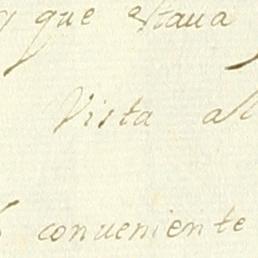 que estava
Vista al
conueniente